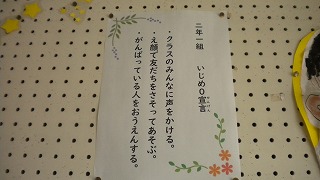 二年一組　いじめ0宣言
・クラスのみんなに声をかける。
・え顔で友だちをさそってあそぶ。
・がんばっている人をおうえんする。